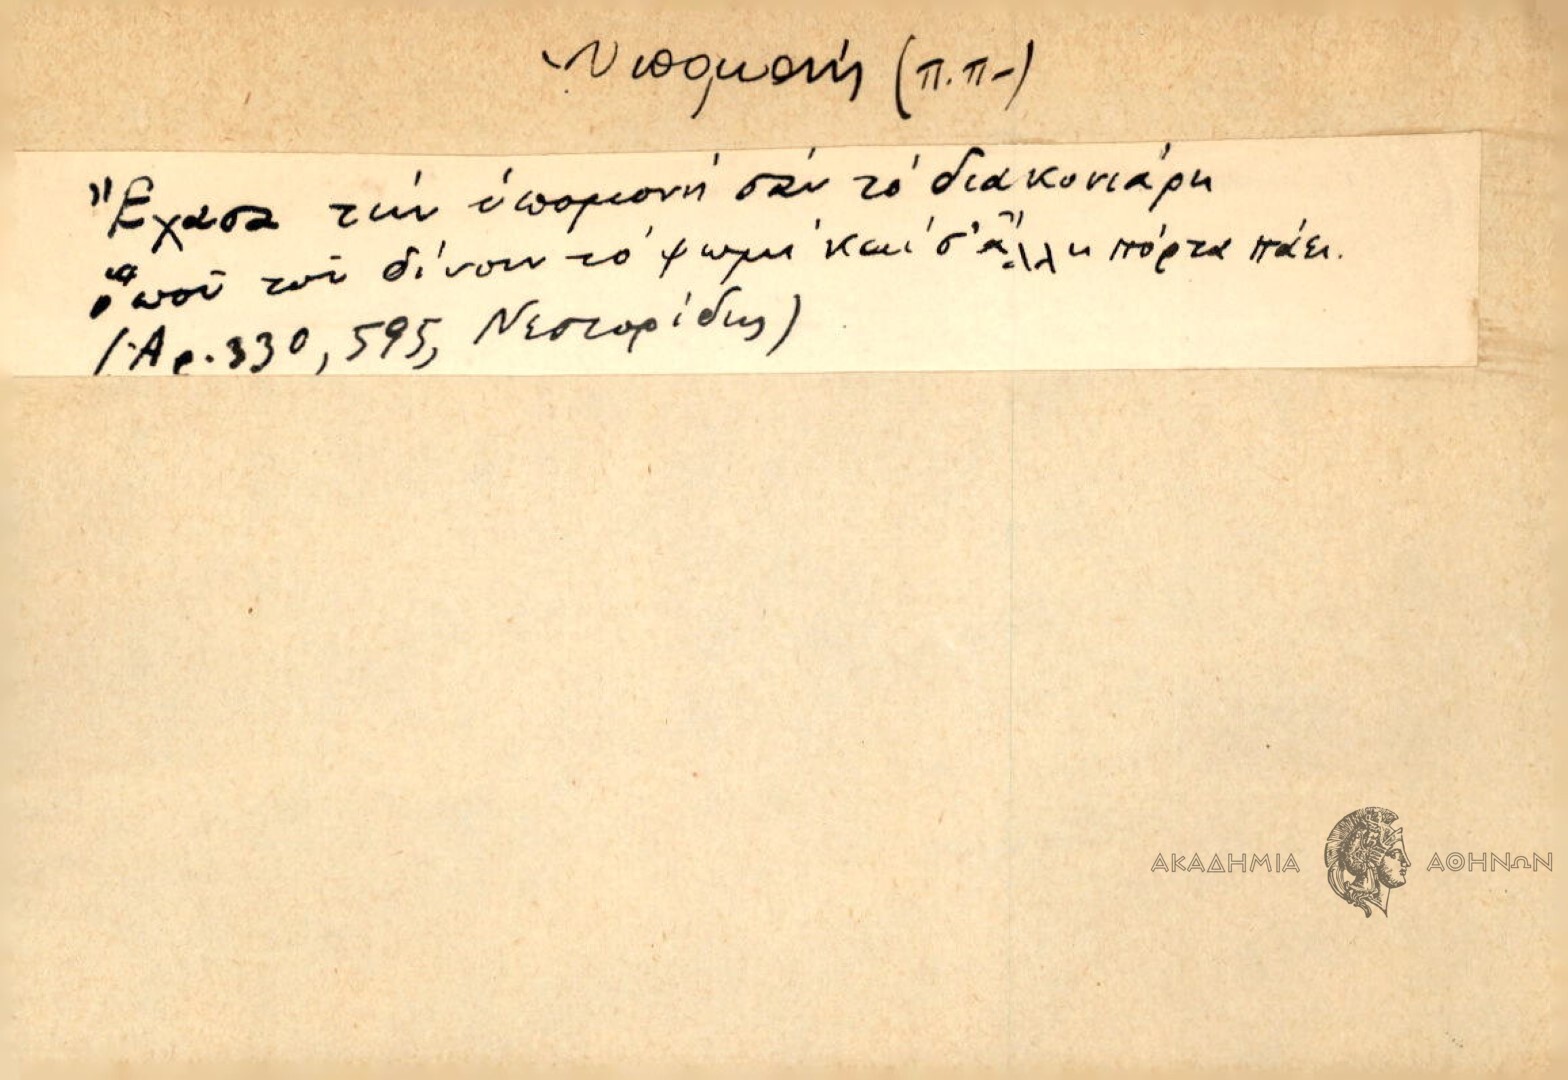 Ὑπομονή (π.π-)
Ἔχασα τήν ὑπομονή σάν τό διακονιάρη
ὁποῦ τοῦ δίνουν τό ψωμί καί σ' ἄλλη πόρτα πάει.
(Ἀρ. 330, 595, Νεστορίδης)
ΑΚΑΔΗΜΙΑ ΑΘΗΝΩΝ